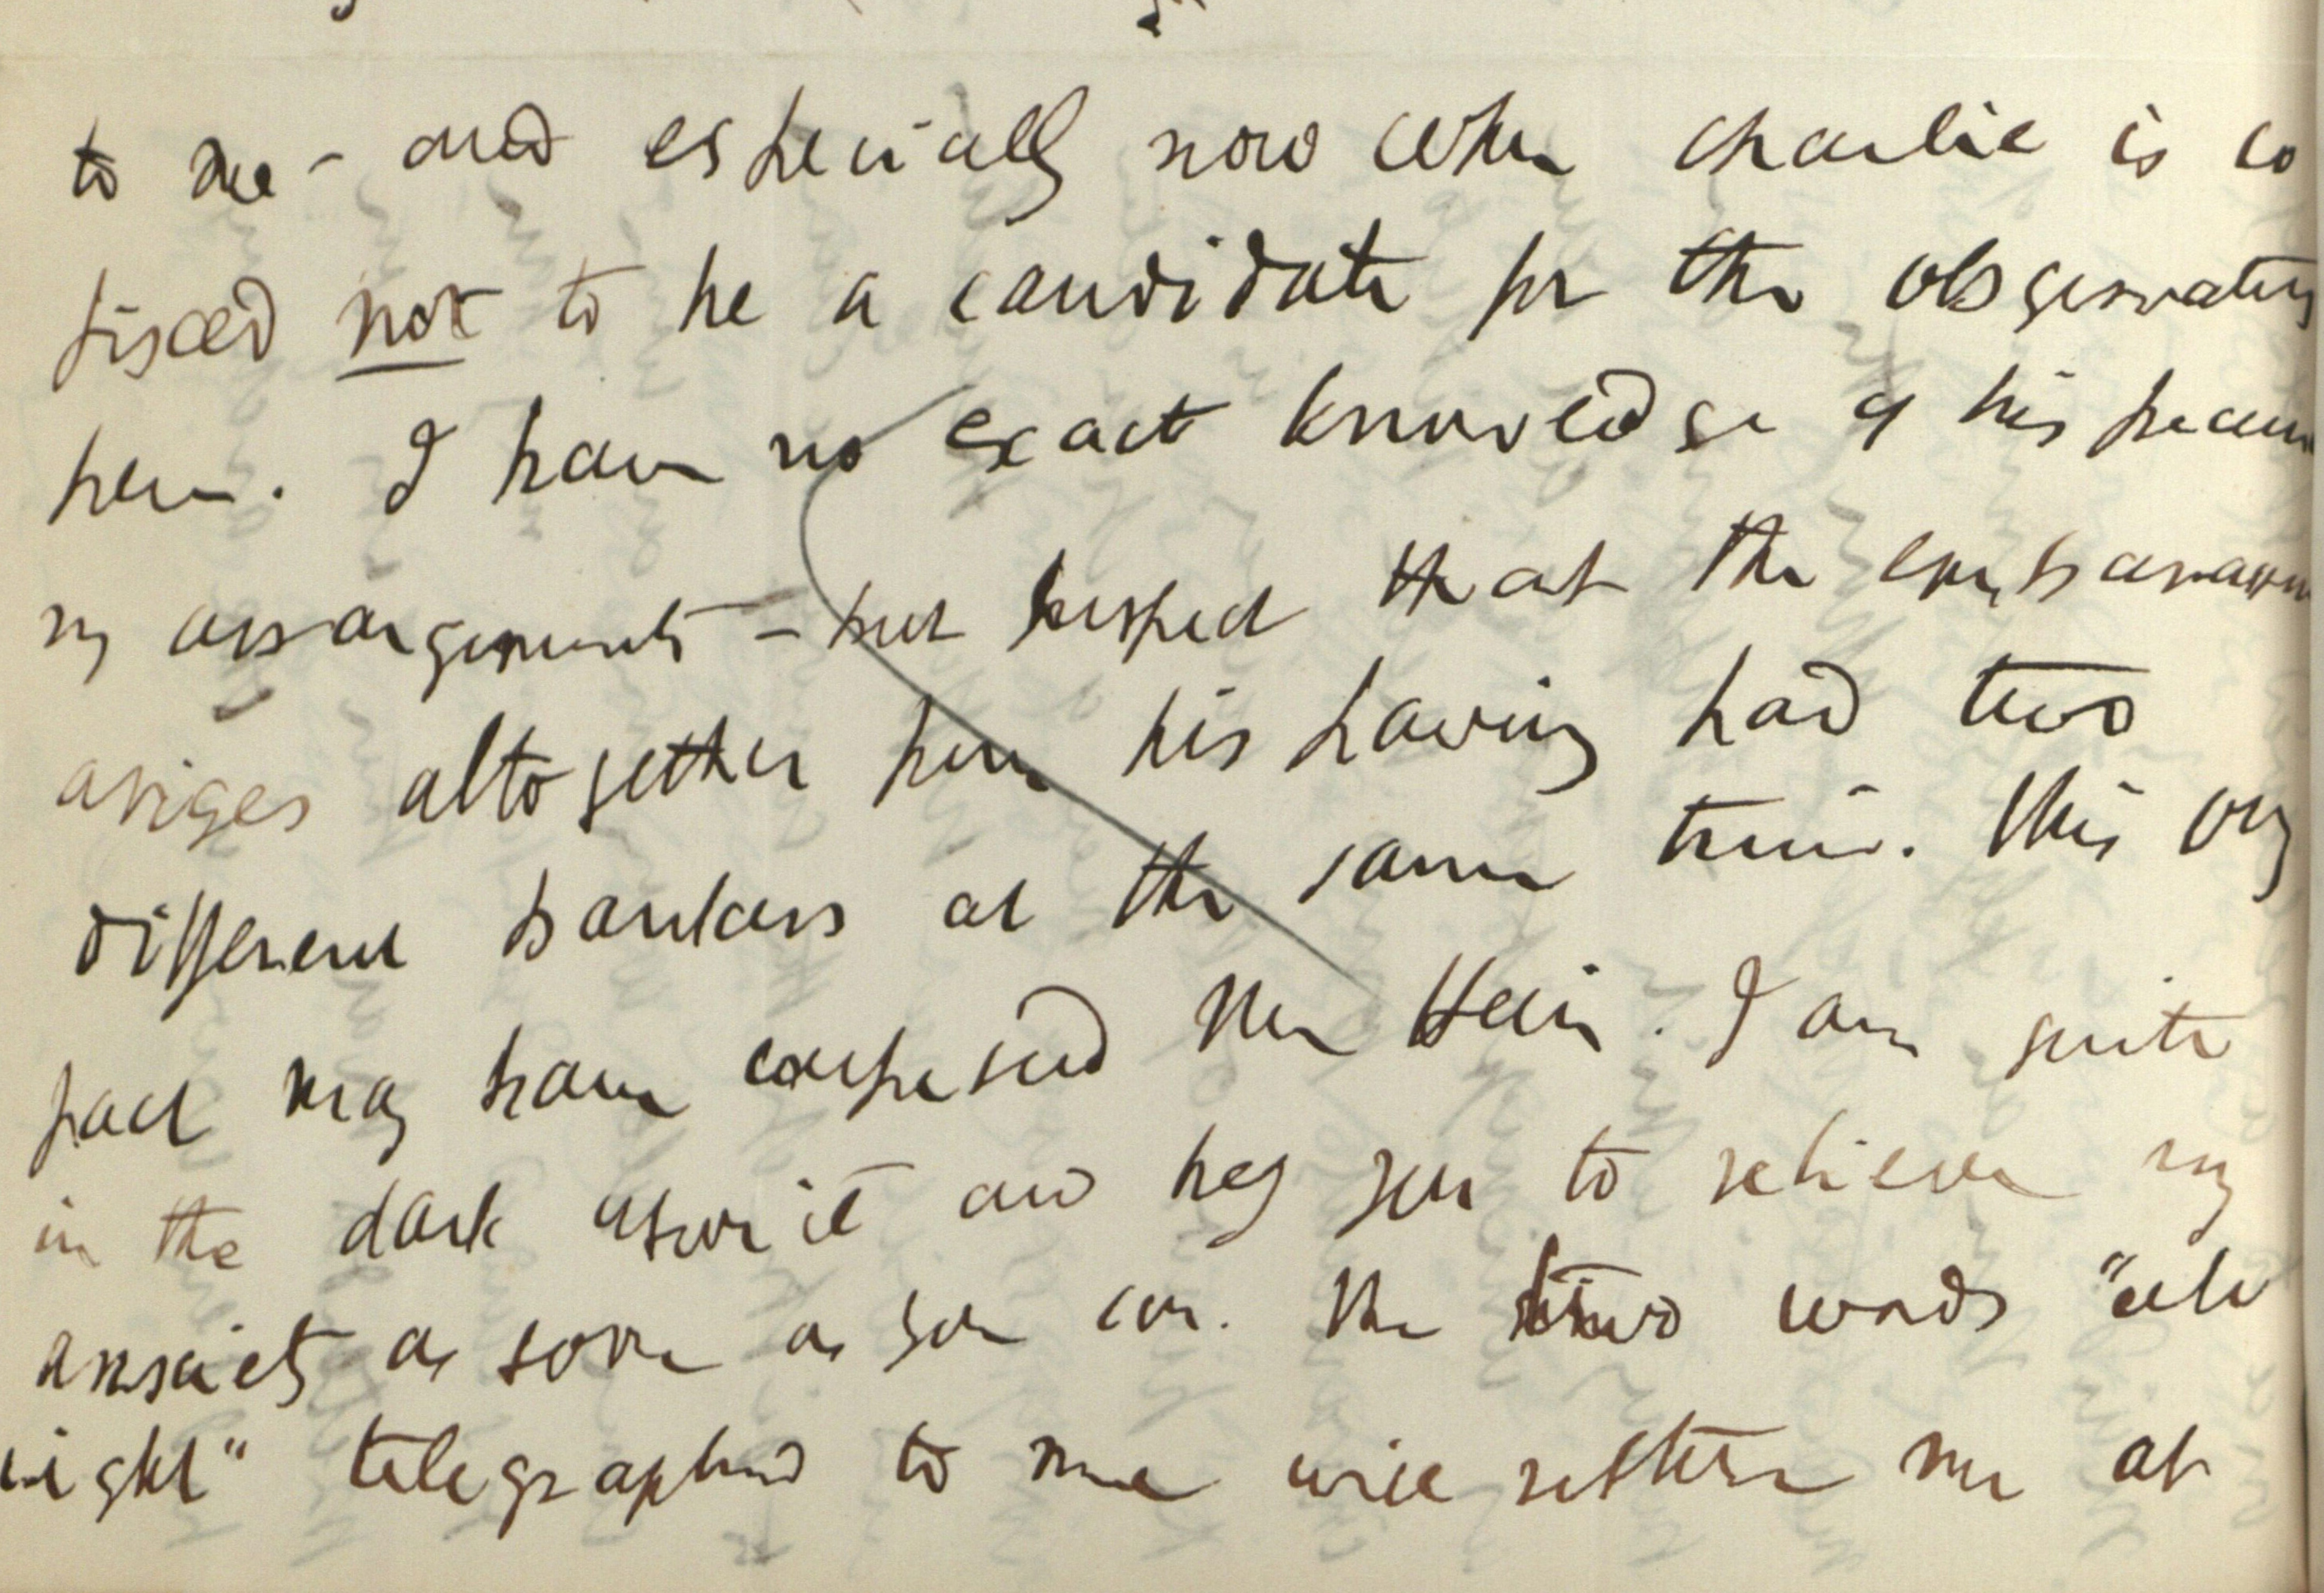 to me - and especially now when Charlie is co
fixed not to be a candidate for the observatory
here. I have no exact knowledge of his pecun
ry arrangements - but hoped that the embarrass
ariges altogether from his having had two
different bankers at the same time. This very
fact may have confused Mr Hein. I am quite
in the dark as it and beg you to relieve my
anxiety as soon as you can. The two words "all
right" telegraphed to me will set me at